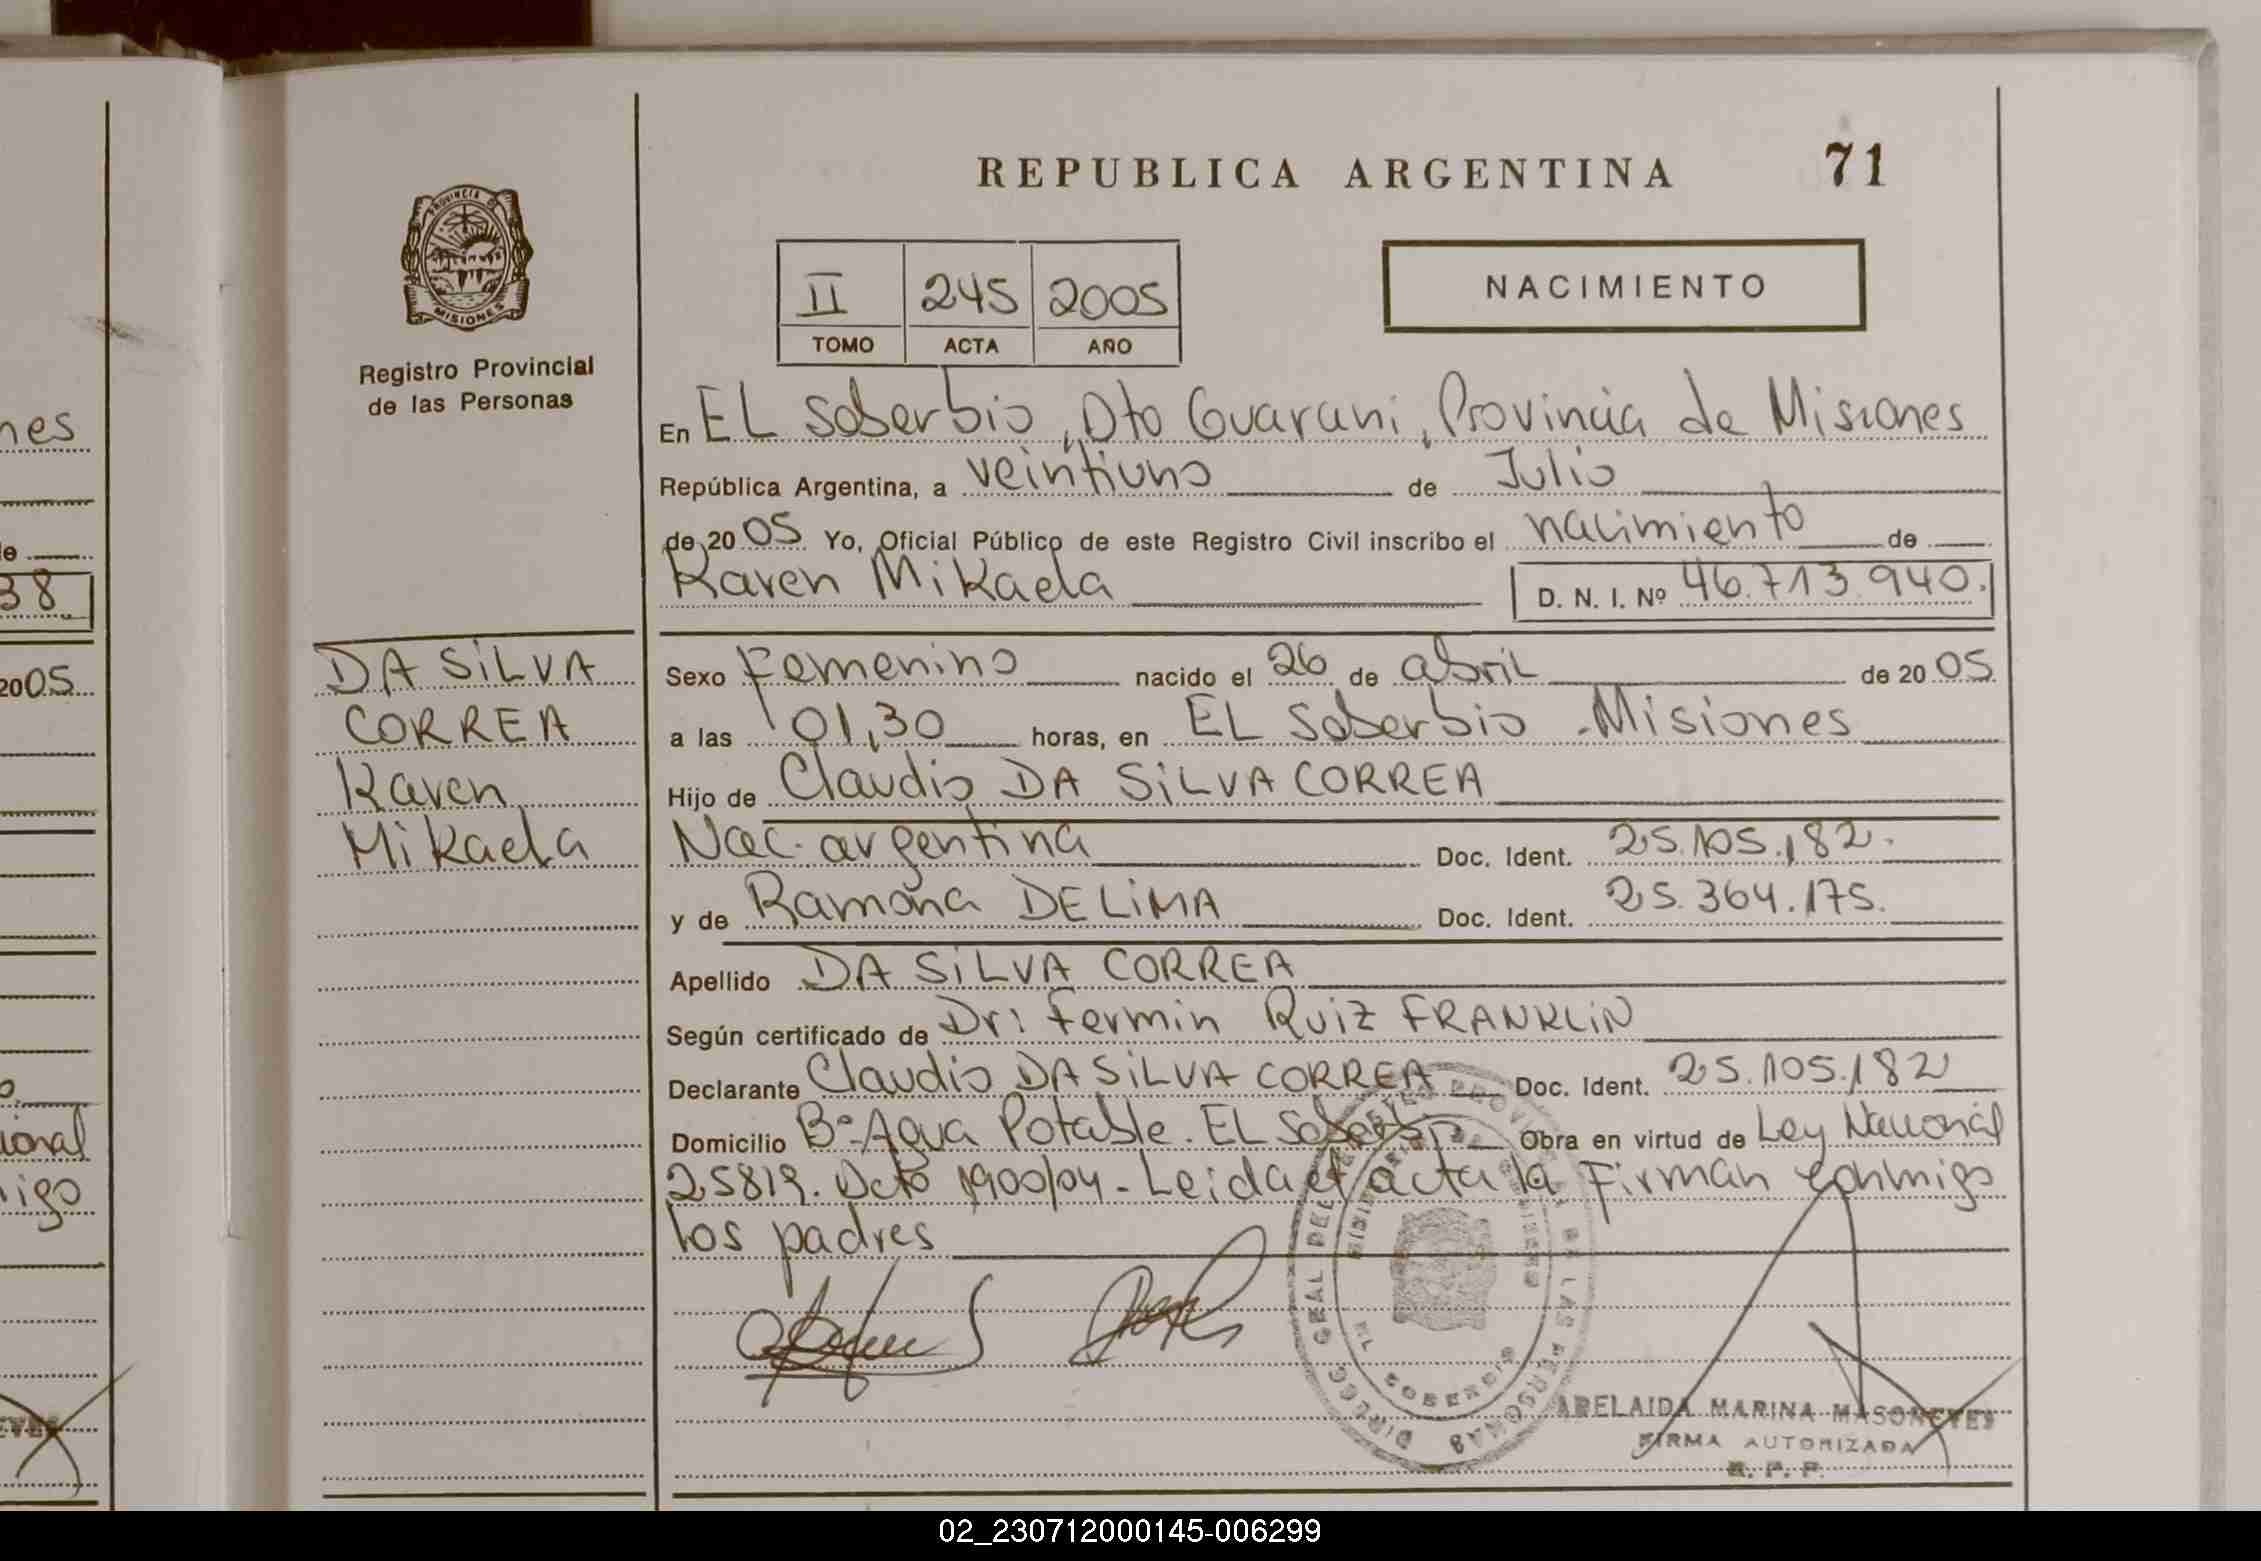 REPUBLICA ARGENTINA 71
PROVINCIA DE
MISIONES
Registro Provincial
de las Personas
II 245 2005
TOMO ACTA AÑO
NACIMIENTO
nes
En EL Soberbio, Dto Guarani, Provincia de Misiones
República Argentina, a veintiuno de Julio
de 2005 Yo, Oficial Público de este Registro Civil inscribo el nacimiento de
Karen Mikaela D. N. I. Nº 46.713.940.
38
DA SiLVA
CORREA
Karen
Mikaela
2005
Sexo Femenino nacido el 26 de abril de 2005
a las 01,30 horas, en EL Soberbio - Misiones
Hijo de Claudio DA SiLVA CORREA
Nac. argentina Doc. Ident. 25.105.182.
y de Ramona DE LiMA Doc. Ident. 25.364.175.
Apellido DA SiLVA CORREA
Según certificado de Dr: Fermin Ruiz FRANKLiN
Declarante Claudio DA SiLVA CORREA Doc. Ident. 25.105.182
Domicilio Bº Agua Potable. EL Soberbio Obra en virtud de Ley Nacional
25819. Dcto 1900/04 - Leida el acta la Firman conmigo
los padres
ional
igo
DIRECC GRAL DEL REGISTRO PROVINCIAL DE LAS PERSONAS
EL SOBERBIO
ADELAIDA MARINA MASONEYES
FIRMA AUTORIZADA
R. P. P.
02_230712000145-006299